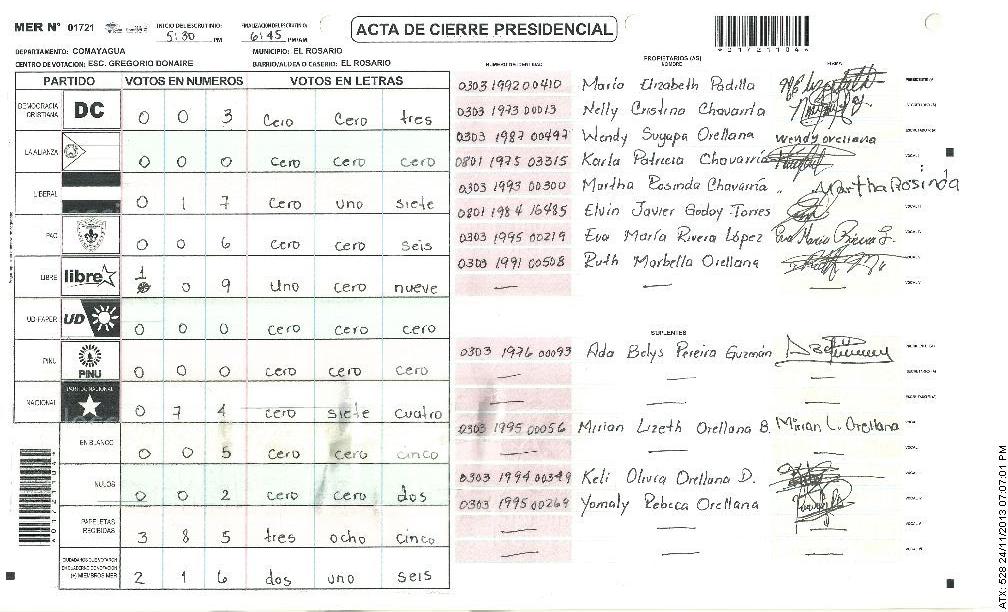 MER Nº 01721
INICIO DEL ESCRUTINIO: 5:30 PM
FINALIZACION DEL ESCRUTINIO: 6:45 PM/AM
ACTA DE CIERRE PRESIDENCIAL
DEPARTAMENTO: COMAYAGUA
MUNICIPIO: EL ROSARIO
CENTRO DE VOTACION: ESC. GREGORIO DONAIRE
BARRIO/ALDEA O CASERIO: EL ROSARIO
PARTIDO VOTOS EN NUMEROS VOTOS EN LETRAS
DEMOCRACIA CRISTIANA DC 0 0 3 Cero Cero tres
LA ALIANZA 0 0 0 Cero Cero Cero
LIBERAL 0 1 7 Cero uno siete
PAC 0 0 6 Cero Cero seis
LIBRE libre 1 0 9 Uno cero nueve
UD-FAPER UD 0 0 0 Cero Cero Cero
PINU PINU 0 0 0 Cero Cero Cero
NACIONAL PARTIDO NACIONAL 0 7 4 cero siete cuatro
EN BLANCO 0 0 5 Cero cero cinco
NULOS 0 0 2 cero cero dos
PAPELETAS RECIBIDAS 3 8 5 tres ocho cinco
CIUDADANOS QUE VOTARON EN CUADERNO DE VOTACION (+) MIEMBROS MER 2 1 6 dos uno seis
PROPIETARIOS (AS)
NUMERO DE IDENTIDAD NOMBRE FIRMA
0303 1992 00410 María Elizabeth Padilla
0303 1973 00013 Nelly Cristina Chavarria
0303 1987 00497 Wendy Suyapa Orellana Wendy orellana
0801 1975 03315 Karla Patricia Chavarría
0303 1993 00300 Martha Rosinda Chavarría Martha Rosinda
0801 1984 16485 Elvin Javier Godoy Torres
0303 1995 00219 Eva María Rivera López
0303 1991 00508 Ruth Marbella Orellana
SUPLENTES
0303 1976 00093 Ada Belys Pereira Guzmán
0303 1995 00056 Mirian Lizeth Orellana B. Mirian L. Orellana
0303 1994 00349 Keli Olivia Orellana D.
0303 1995 00269 Yomaly Rebeca Orellana
ATX: 528 24/11/2013 07:07:01 PM